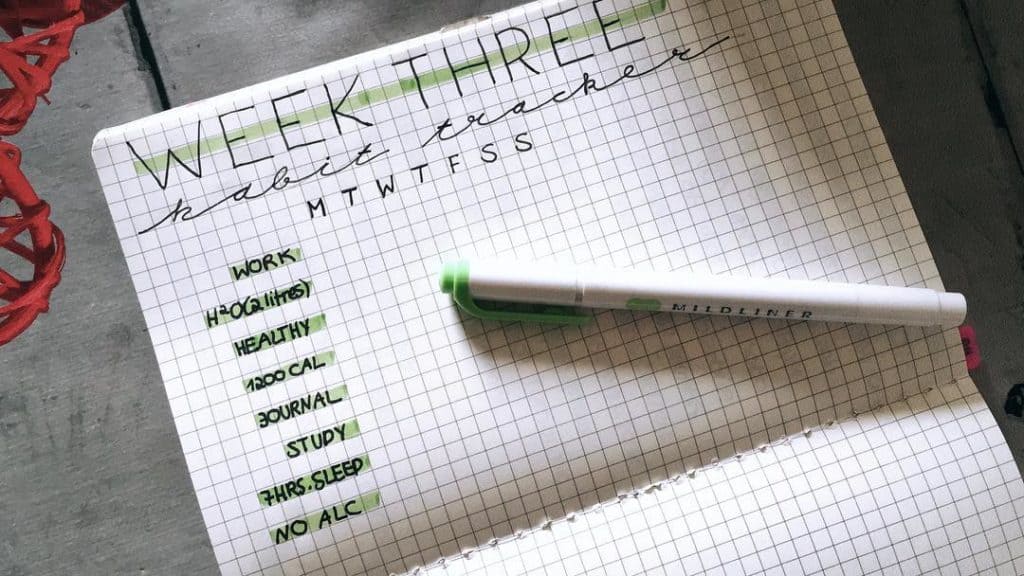 WEEK THREE
habit tracker
M T W T F S S
WORK
H2O (2 litres)
HEALTHY
1200 CAL
JOURNAL
STUDY
7HRS. SLEEP
NO ALC
MILDLINER